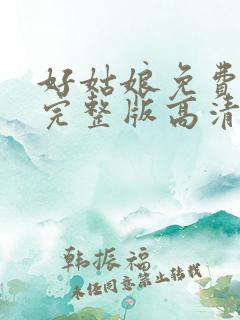 好姑娘免费
完整版高清
韩振福
未经同意禁止转载